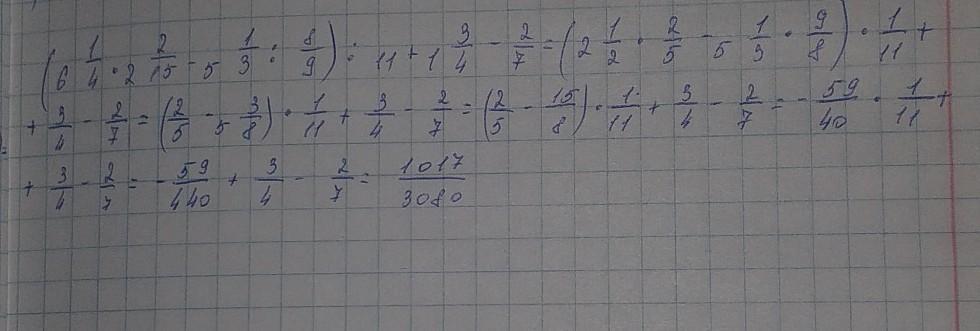 (6 1/4 · 2 2/15 - 5 1/3 : 8/9) : 11 + 1 3/4 - 2/7 = (2 1/2 · 2/5 - 5 1/3 · 9/8) · 1/11 +
+ 3/4 - 2/7 = (2/5 - 5 3/8) · 1/11 + 3/4 - 2/7 = (2/5 - 15/8) · 1/11 + 3/4 - 2/7 = - 59/40 · 1/11 +
+ 3/4 - 2/7 = - 59/440 + 3/4 - 2/7 = 1017/3080